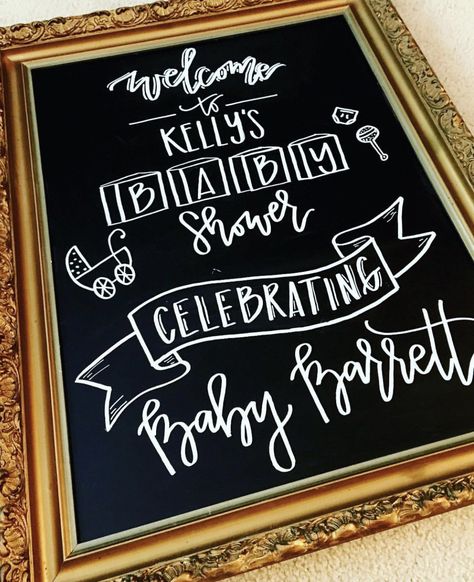 Welcome
to
KELLY'S
BABY
Shower
CELEBRATING
Baby Barrett